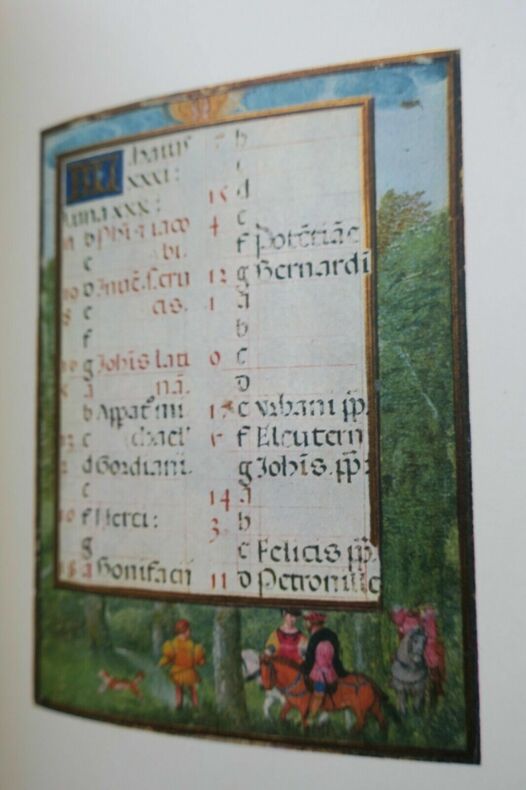 habus
xxxi:
Luna xxx:
b Phi. z iaco
bi.
c
D Inuē. s. cru
e cis.
f
g Johis lati
a na.
b Appat° mi
c chael
d Gordiani.
e
f Nerei:
g
a Bonifacii
b
c
15 d
4 e
f Potētiāe
12 g Bernardi
1 a
b
0 c
D
17 e Vrbani pp.
f Eleuterii
g Johis. pp:
14 a
3 b
c Felicis pp.
11 D Petronille